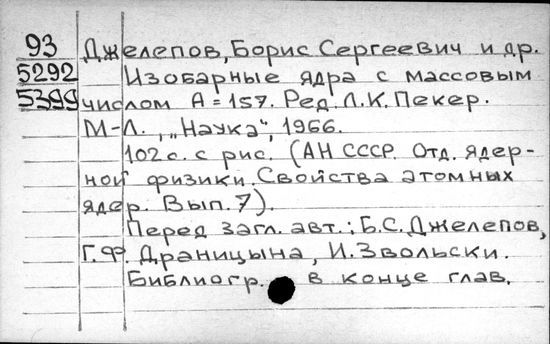 93 Джелепов, Борис Сергеевич и др.
5292 Изобарные ядра с массовым
5399 числом А=157. Ред. Л.К. Пекер.
М-Л., „Наука“, 1966.
102 с. с рис. (АН СССР. Отд. ядер-
ной физики. Свойства атомных
ядер. Вып. 7).
Перед загл. авт.: Б.С. Джелепов,
Г.Ф. Драницына, И. Звольски.
Библиогр. в конце глав.